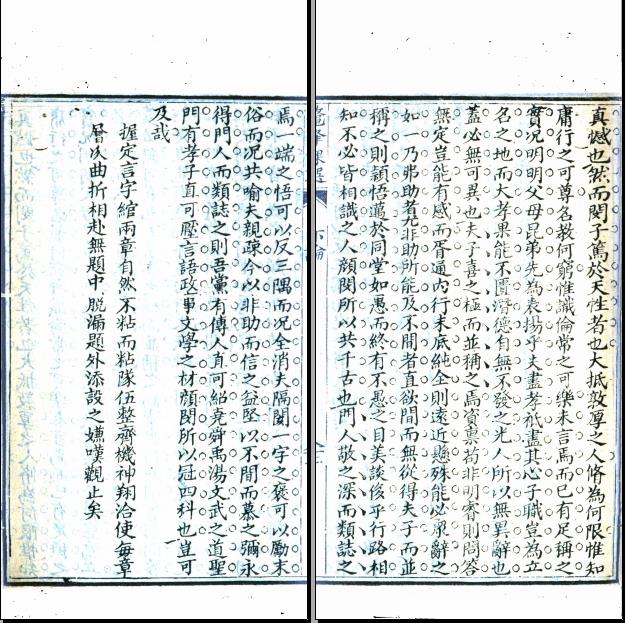 真憾也然而閔子篤於天性者也大抵敦厚之人脩為何限惟知
庸行之可尊名教何窮惟識倫常之可樂未言焉而已有足稱之
實況明明父母昆弟先為表揚乎夫盡孝祇盡其心子職豈為立
名之地而大孝果能不匱潛德自無不發之光人所以無異辭也
蓋必無可異也夫子喜之極而並稱之焉資禀苟非明睿則問答
無定豈能有感而胥通內行未底純全則遠近懸殊能必眾辭之
如一乃弗助者尤非助所能及不間者直欲間而無從得夫子而並
稱之則穎悟邁於同堂如愚而終有不愚之目美談俟乎行路相
知不必皆相識之人顏閔所以共千古也門人敬之深而類誌之
焉一端之悟可以反三隅而況全消夫隔閡一字之褒可以勵末
俗而況共喻夫親疎今以非助而信之益堅以不間而慕之彌永
得門人而類誌之則吾黨有傳人直可紹堯舜禹湯文武之道聖
門有孝子直可壓言語政事文學之材顏閔所以冠四科也豈可
及哉
握定言字綰兩章自然不粘而粘隊伍整齊機神翔洽使每章
層次曲折相赴無題中脫漏題外添設之嫌嘆觀止矣